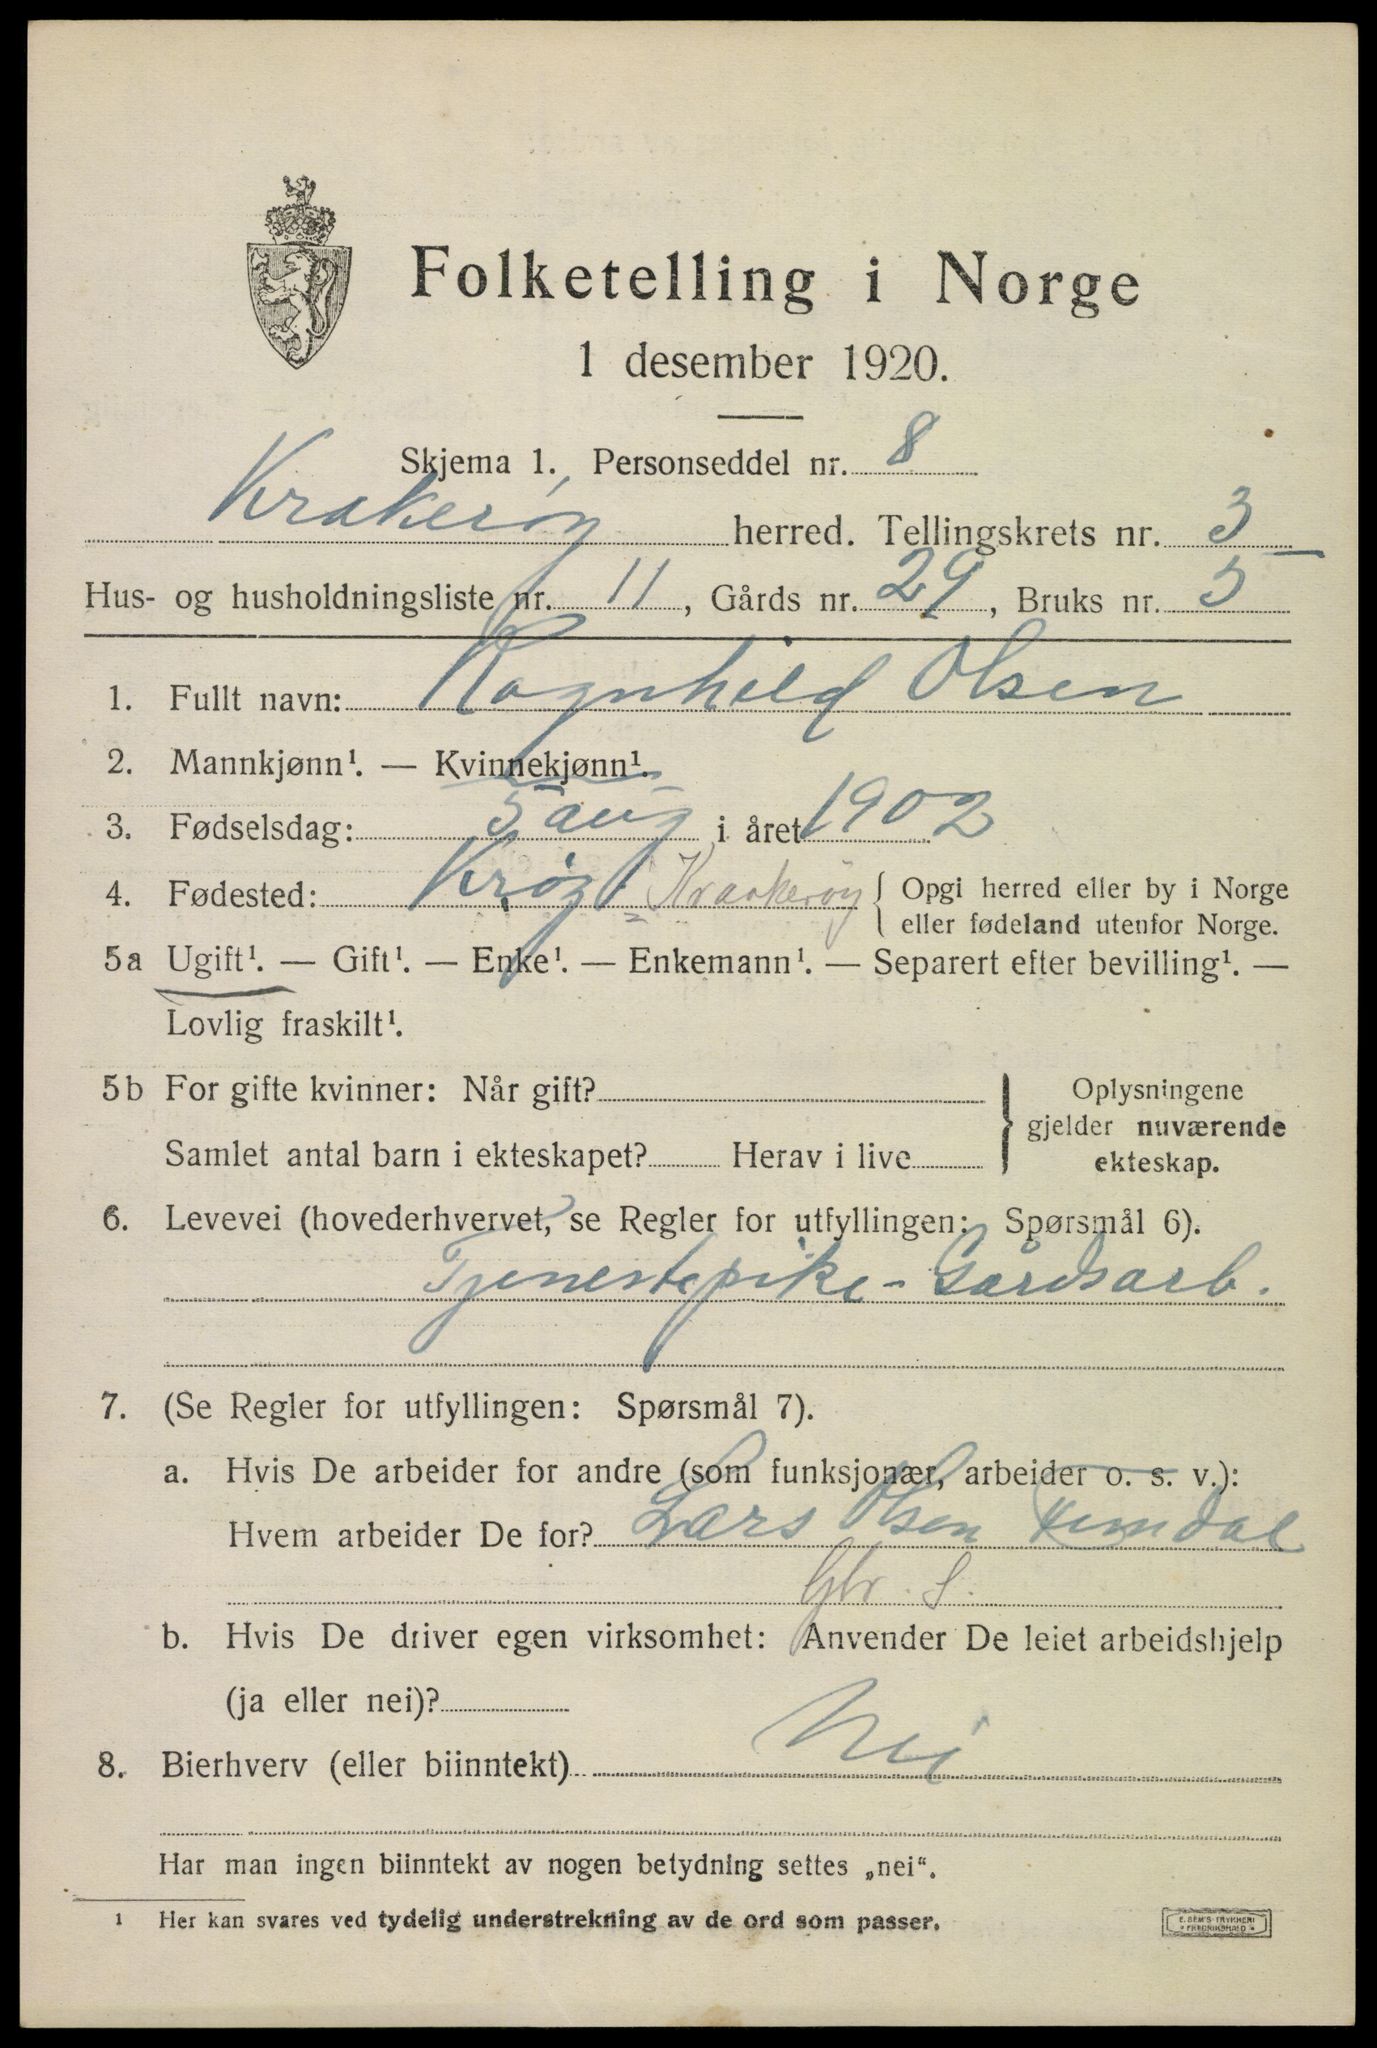 Folketelling i Norge
1 desember 1920.
Skjema 1. Personseddel nr. 8
Krakerøy herred. Tellingskrets nr. 3
Hus- og husholdningsliste nr. 11, Gårds nr. 29, Bruks nr. 5
1. Fullt navn: Ragnhild Olsen
2. Mannkjønn¹. — Kvinnekjønn¹.
3. Fødselsdag: 5 aug i året 1902
4. Fødested: Krøy Kraakerøy { Opgi herred eller by i Norge
eller fødeland utenfor Norge.
5a Ugift¹. — Gift¹. — Enke¹. — Enkemann¹. — Separert efter bevilling¹. —
Lovlig fraskilt¹.
5b For gifte kvinner: Når gift? } Oplysningene
gjelder nuværende
Samlet antal barn i ekteskapet? Herav i live
ekteskap.
6. Levevei (hovederhvervet, se Regler for utfyllingen: Spørsmål 6).
Tjenestepike - Gårdsarb.
7. (Se Regler for utfyllingen: Spørsmål 7).
a. Hvis De arbeider for andre (som funksjonær, arbeider o. s. v.):
Hvem arbeider De for? Lars Olsen
Gbr. S.
b. Hvis De driver egen virksomhet: Anvender De leiet arbeidshjelp
(ja eller nei)?
8. Bierhverv (eller biinntekt) Nei
Har man ingen biinntekt av nogen betydning settes „nei“.
1 Her kan svares ved tydelig understrekning av de ord som passer.
E. SEM'S TRYKKERI
* FREDRIKSHALD *